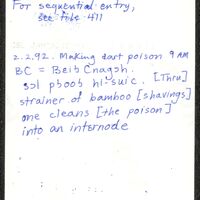 For sequential entry,
see file 411
2.2.92. Making dart poison 9 AM
BC = Beib Cnagsh.
sɔl pboob hl-suic. [Thru]
strainer of bamboo [shavings]
one cleans [the poison]
into an internode